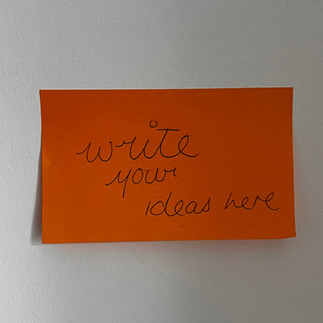 write
your
ideas here